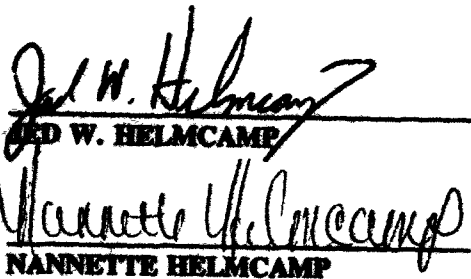 Jed W. Helmcamp
JED W. HELMCAMP
Nannette Helmcamp
NANNETTE HELMCAMP